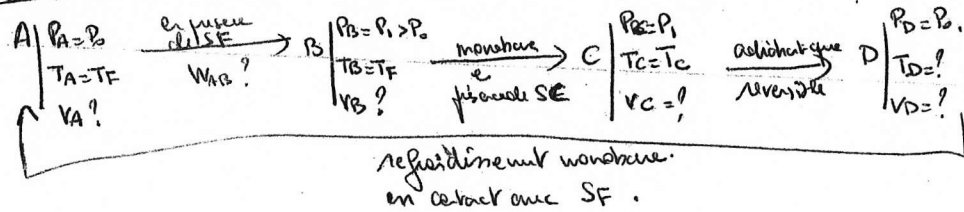 A | P_A = P_0 | T_A = T_F | V_A ?
en présence de SF → W_AB ?
B | P_B = P_1 > P_0 | T_B = T_F | V_B ?
monobare → e présence de SC
C | P_BC = P_1 | T_C = T_C | V_C = ?
adiabatique → réversible
D | P_D = P_0. | T_D = ? | V_D = ?
refroidissement monobare.
en contact avec SF .